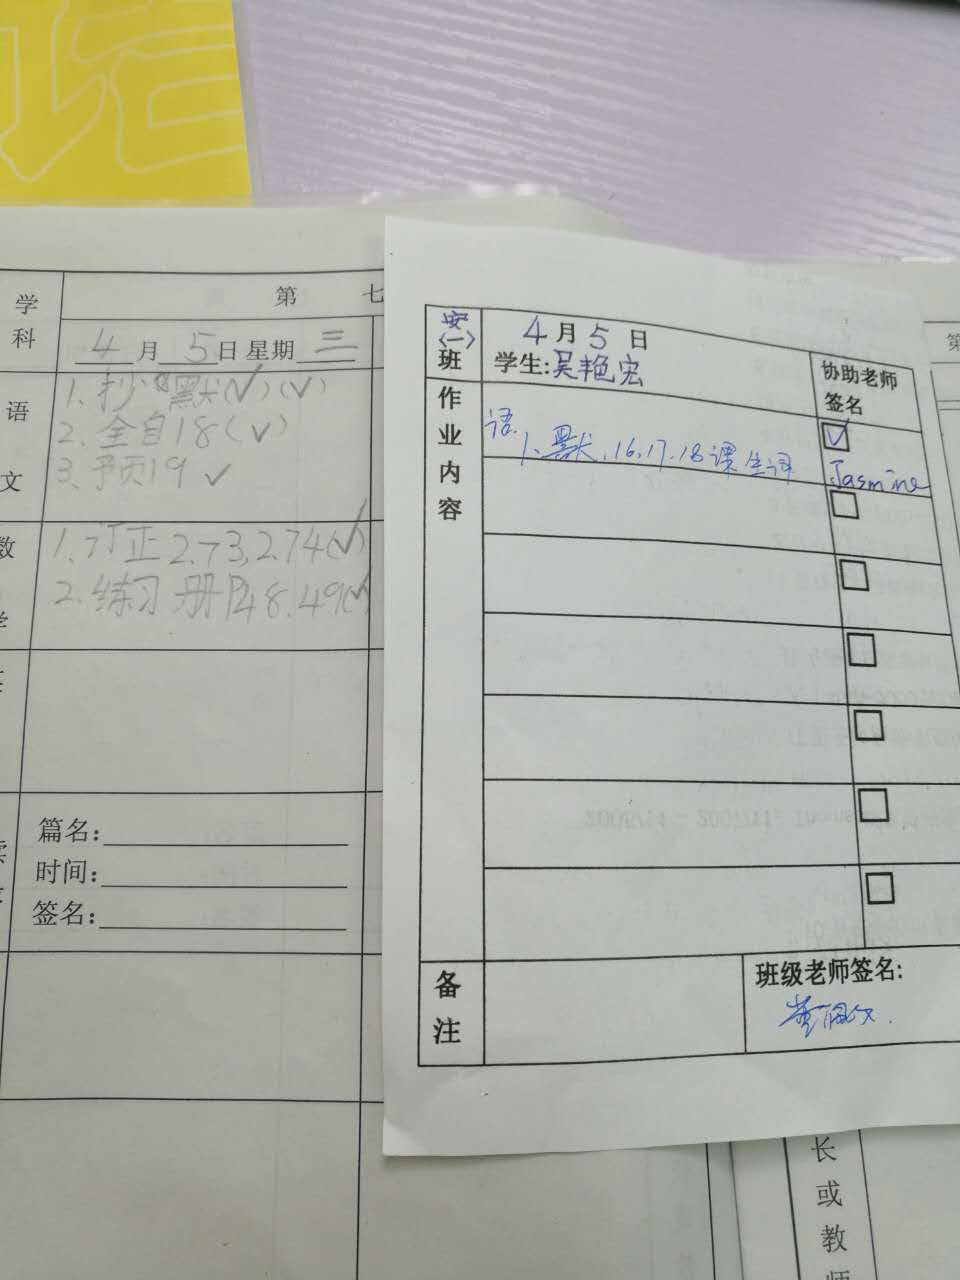 学科
第 七
4月5日 星期三
语文
1. 抄"默(✓)(✓)
2. 全自18(✓)
3. 予页19 ✓
数
1. 订正2.73,2.74(✓)
2. 练习册P48.49(✓)
篇名:
时间:
签名:
安(一)班
4月5日
学生:吴艳宏
协助老师签名
作业内容
语.
1、默、16.17.18课生词
☑
Jasmine
备注
班级老师签名:
第
长或教师